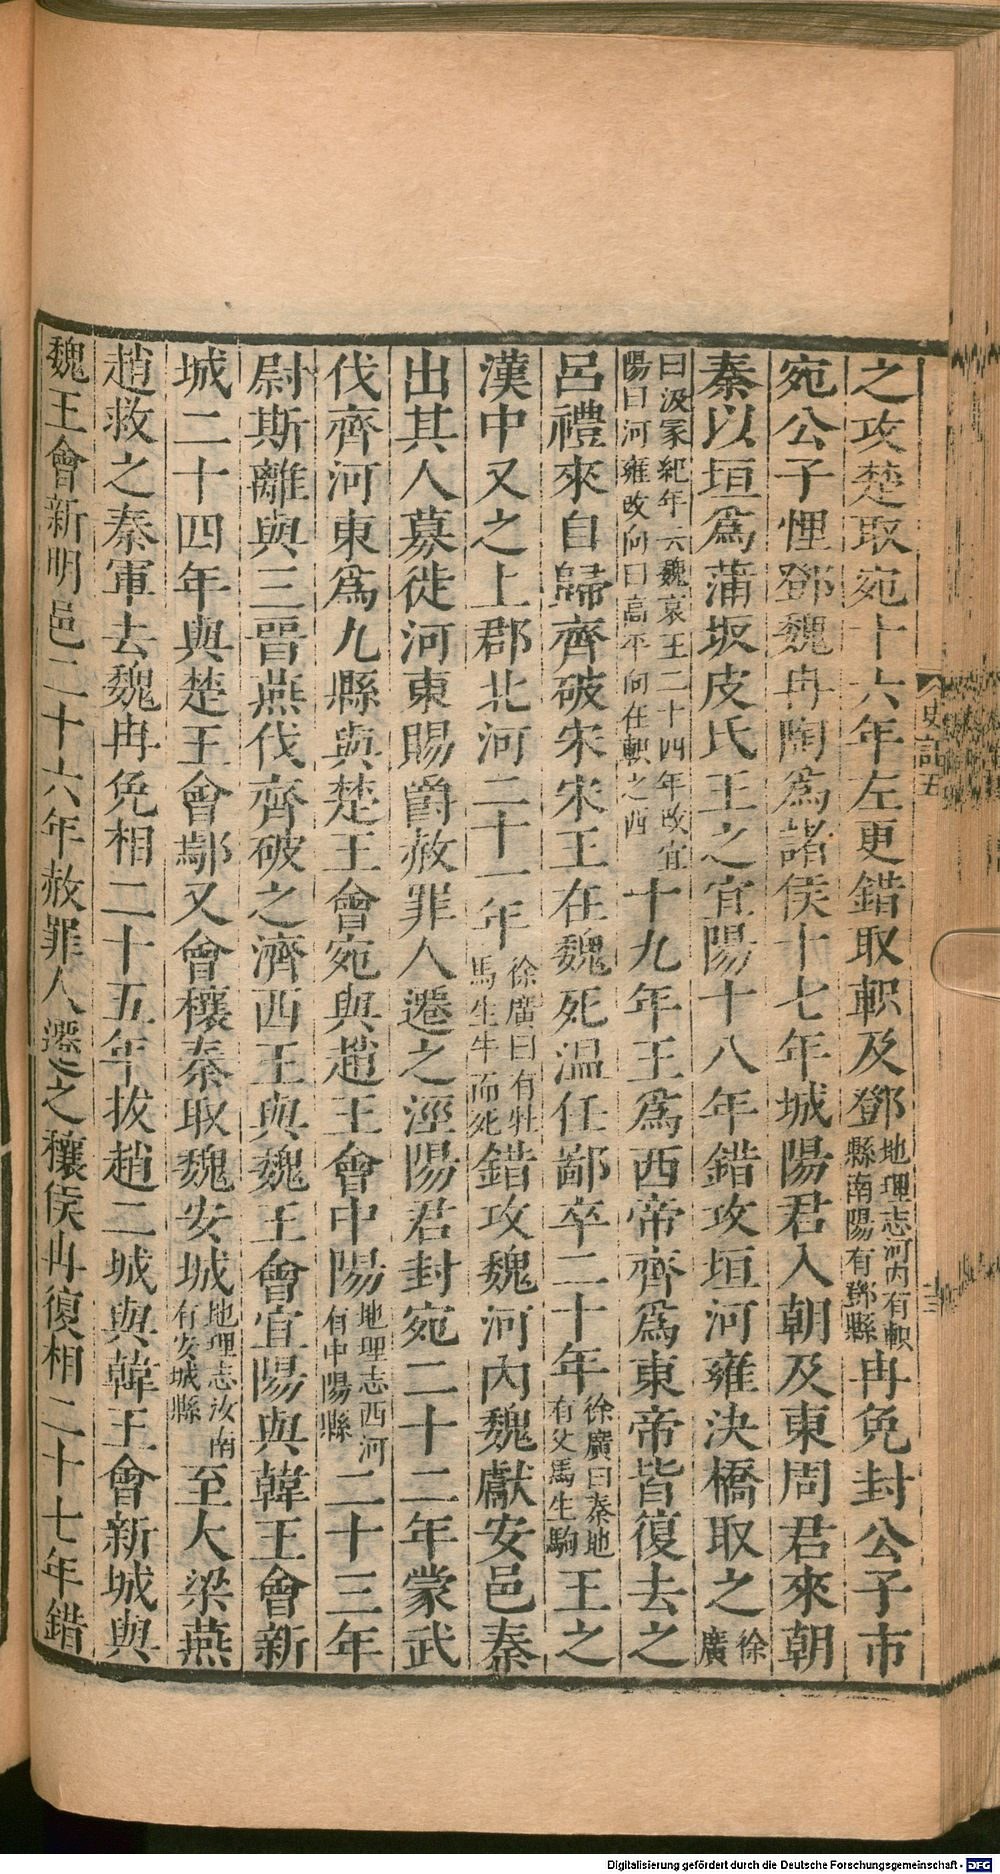 之攻楚取宛十六年左更錯取軹及鄧地理志河内有軹縣南陽有鄧縣冉免封公子市
宛公子悝鄧魏冉陶爲諸侯十七年城陽君入朝及東周君來朝
秦以垣爲蒲坂皮氏王之宜陽十八年錯攻垣河雍決橋取之徐廣
曰汲冢紀年云魏哀王二十四年改宜陽曰河雍改向曰高平向在軹之西十九年王爲西帝齊爲東帝皆復去之
呂禮來自歸齊破宋宋王在魏死温任鄙卒二十年徐廣曰秦地有父馬生駒王之
漢中又之上郡北河二十一年徐廣曰有牡馬生牛而死錯攻魏河内魏獻安邑秦
出其人募徙河東賜爵赦罪人遷之涇陽君封宛二十二年蒙武
伐齊河東爲九縣與楚王會宛與趙王會中陽地理志西河有中陽縣二十三年
尉斯離與三晉燕伐齊破之濟西王與魏王會宜陽與韓王會新
城二十四年與楚王會鄢又會穰秦取魏安城地理志汝南有安城縣至大梁燕
趙救之秦軍去魏冉免相二十五年拔趙二城與韓王會新城與
魏王會新明邑二十六年赦罪人遷之穰侯冉復相二十七年錯
史記五
Digitalisierung gefördert durch die Deutsche Forschungsgemeinschaft - DFG